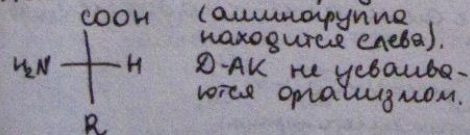 COOH (аминогруппа
находится слева).
H₂N H D-АК не усваива-
ются организмом.
R